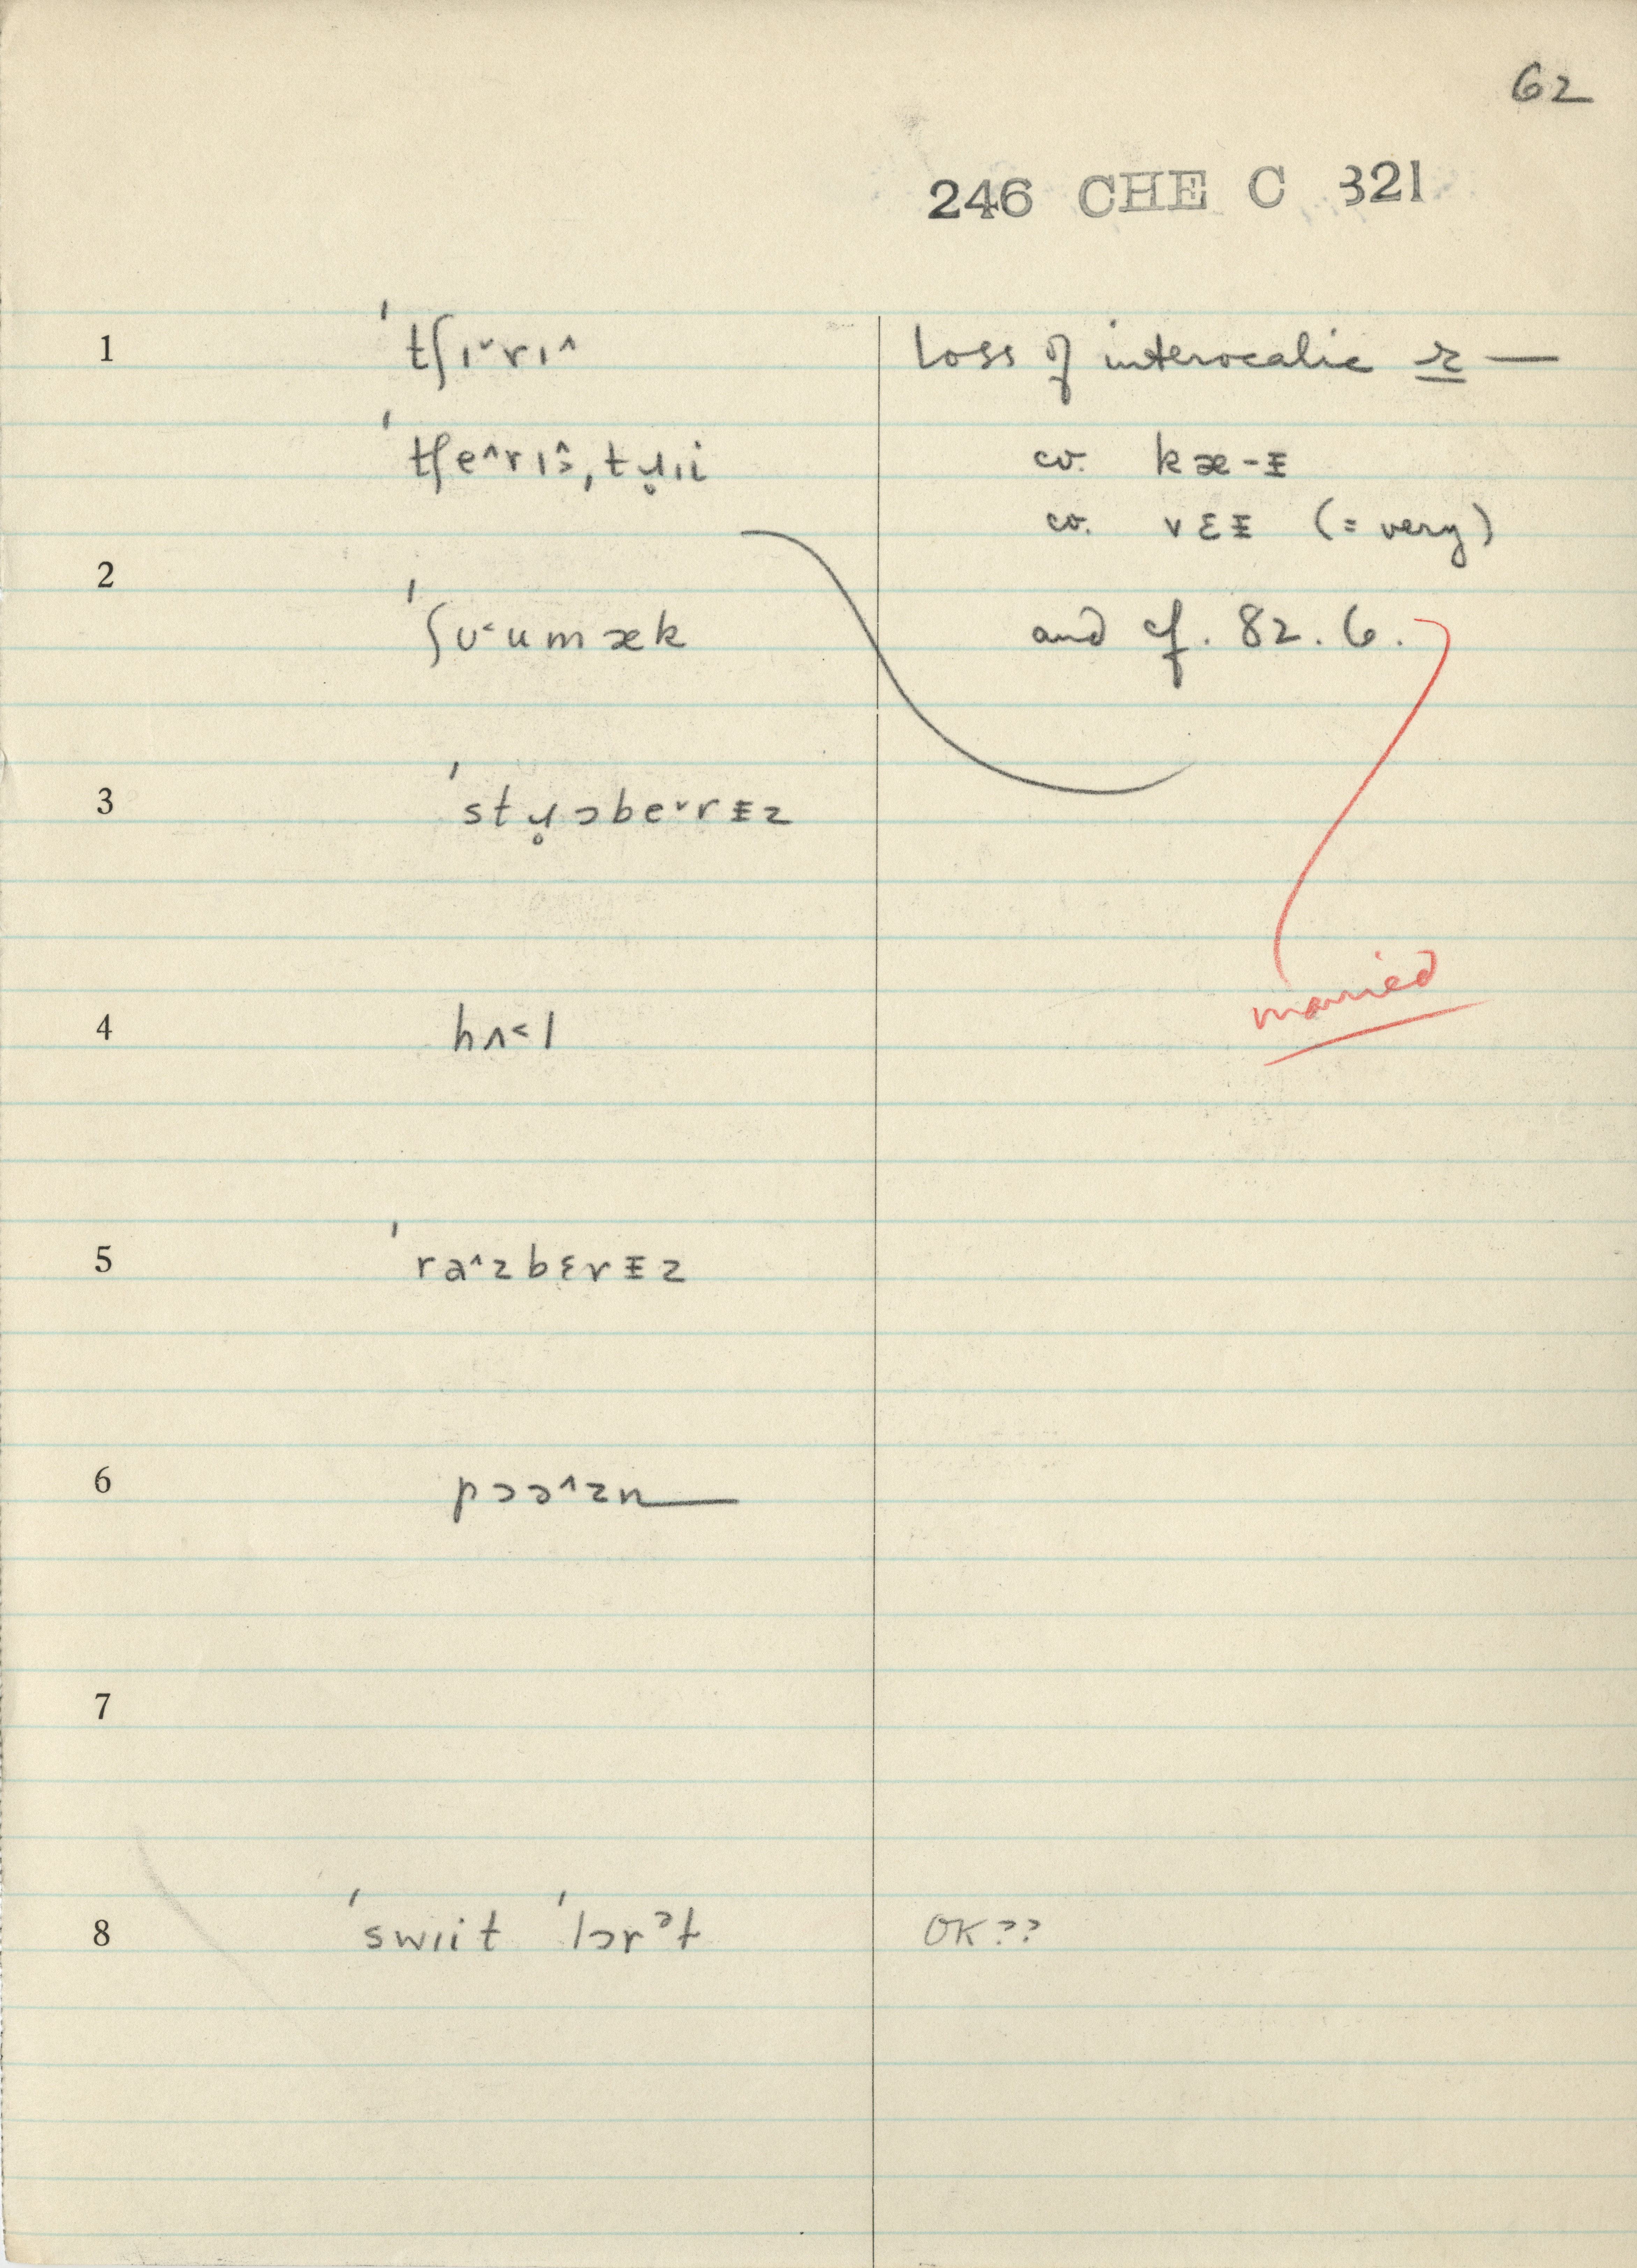 62
246 CHE C 321
1 ˈtʃɪ˅rɪ˄ Loss of intervocalic r —
ˈtʃe˄rɪ˄>, tɹ̥ɪi cv. kæ-ᵻ
cv. vɛᵻ (= very)
2 ˈʃʊ˂umæk and cf. 82.6.
3 ˈstɹ̥ɔbe˅rᵻz
married
4 hʌ˂l
5 ˈra˄zbɛrᵻz
6 pɔə˄zn—
7
8 ˈswɪit ˈlɔrᵊt OK??